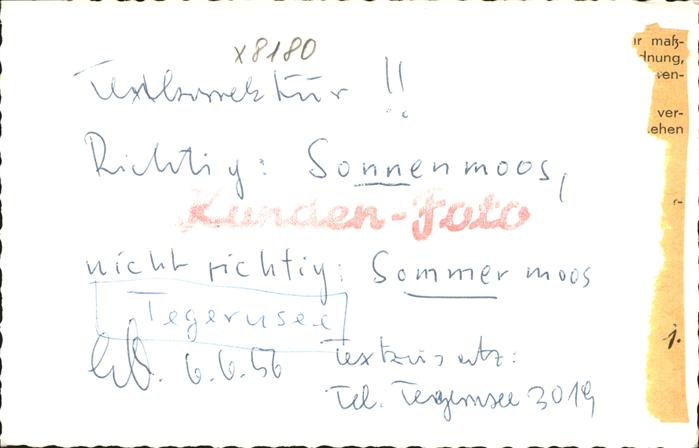 x8180
Textkorrektur !!
Richtig: Sonnenmoos,
Kunden-Foto
nicht richtig: Sommermoos
Tegernsee
6.6.56
Textzusatz:
Tel. Tegernsee 3019
maß-
dnung,
ver-
ehen